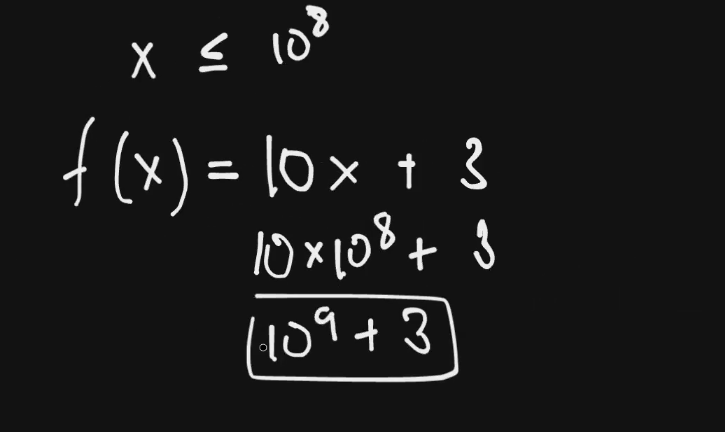 x ≤ 10⁸
f(x) = 10x + 3
10×10⁸ + 3
10⁹ + 3